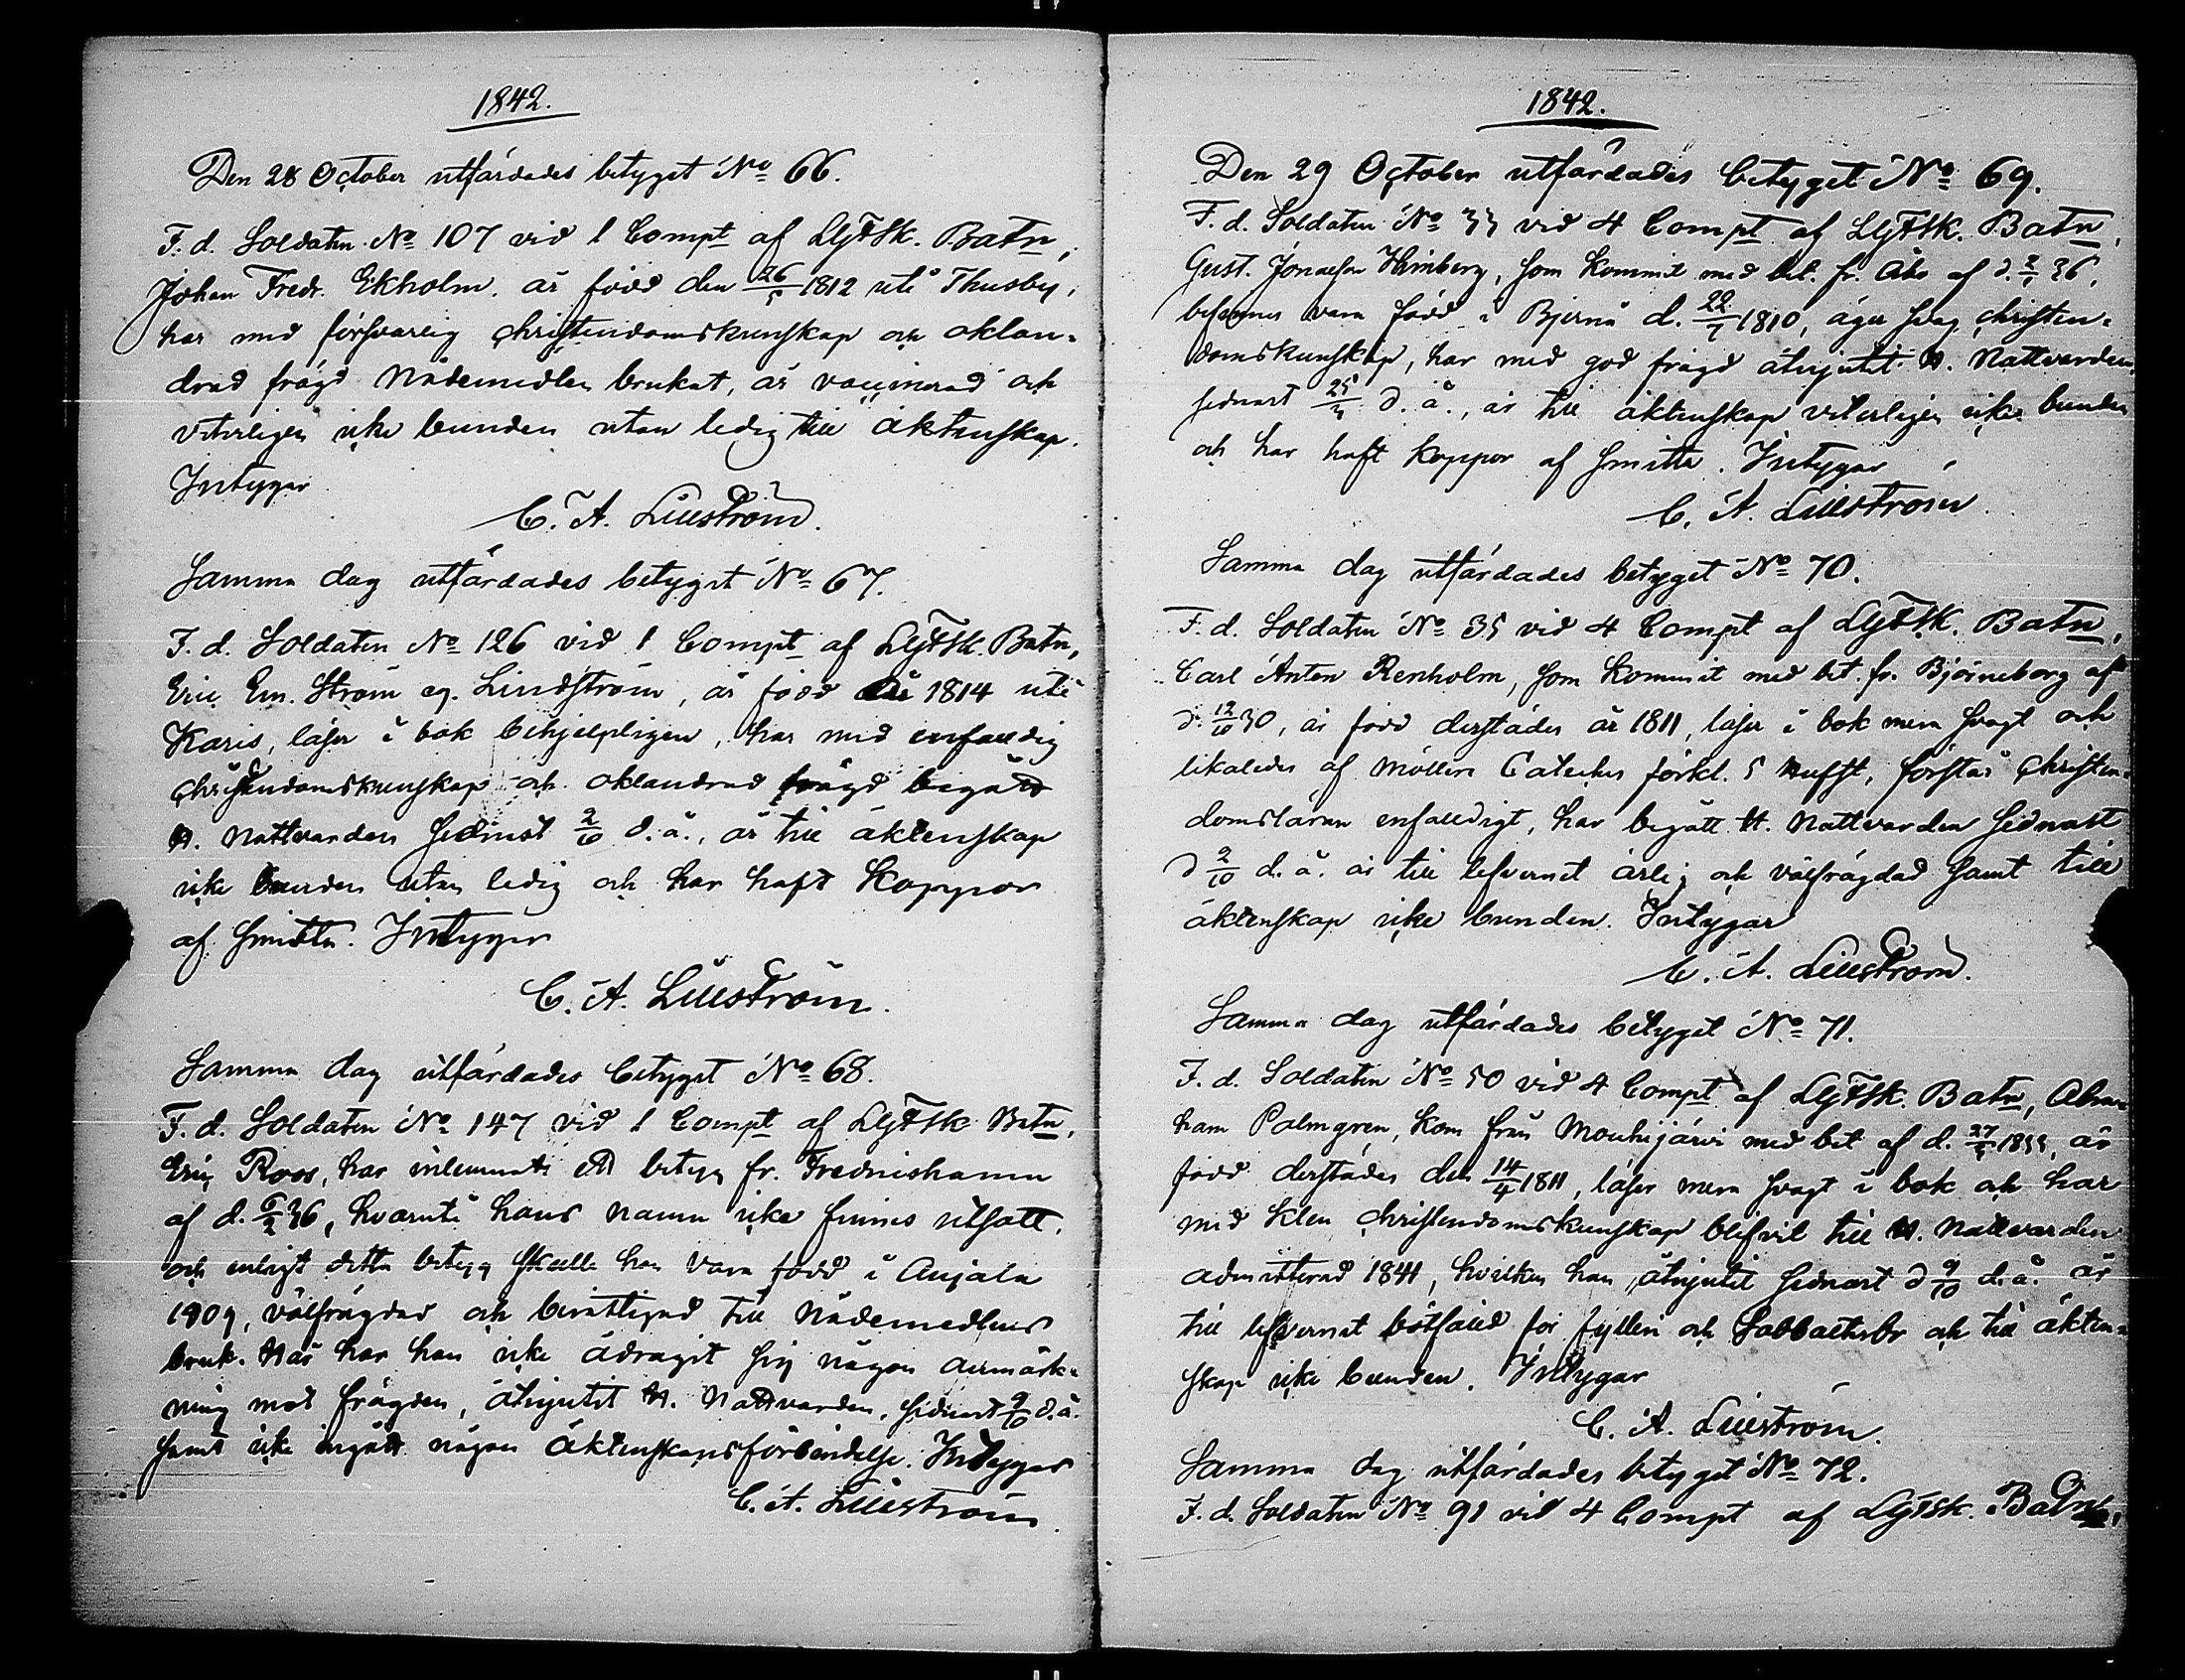 1842.
Den 28 October utfärdades betyget No 66.
F. d. Soldaten No 107 vid 1 Compt af LGFSk. Batn,
Johan Fredr. Ekholm, är född den 26/5 1812 uti Thusby,
har med försvarlig christendomskunskap och oklan-
drad frägd Nådemedlen brukat, är vaccinerad och
veterligen icke bunden utan ledig till äktenskap.
Intygar
C. A. Lilleström.
Samma dag utfärdades betyget No 67.
F. d. Soldaten No 126 vid 1 Compt af LGFSk. Batn,
Eric Em. Ström eg. Lindström, är född år 1814 uti
Karis, läser i bok behjelpligen, har med enfaldig
christendomskunskap och oklandrad frägd begått
H. Nattvarden sednast 2/10 d. å., är till äktenskap
icke bunden utan ledig och har haft Koppor
af smitta. Intygar
C. A. Lilleström.
Samma dag utfärdades betyget No 68.
F. d. Soldaten No 147 vid 1 Compt af LGFSk Batn,
Eric Roos, har inlemnat ett betyg fr. Fredrikshamn
af d. 6/2 36, hvaruti hans namn icke finnes utsatt,
och enligt detta betyg skulle han vara född i Anjala
1809, välfrägdad och berättigad till Nådemedlens
bruk. Här har han icke ådragit sig någon anmärk-
ning mot frägden, åtnjutit H. Nattvarden, sednast 9/10 d. å.
samt icke ingått någon äktenskapsförbindelse. Intygar
C. A. Lilleström.
1842.
Den 29 October utfärdades betyget No 69.
F. d. Soldaten No 33 vid 4 Compt af LGFSk. Batn,
Gust. Jonasson Himberg, som kommit med bet. fr. Åbo af d. 36,
befinnes vara född i Bjernå d. 22/7 1810, äger svag christen-
domskunskap, har med god frägd åtnjutit H. Nattvarden
sednast d. å., är till äktenskap veterligen icke bunden
och har haft koppor af smitta. Intygar
C. A. Lilleström.
Samma dag utfärdades betyget No 70.
F. d. Soldaten No 35 vid 4 Compt af LGFSk. Batn,
Carl Anton Renholm, som kommit med bet. fr. Björneborg af
d. 12/10 30, är född derstädes år 1811, läser i bok mera svagt och
likaledes af Möllers Cateches förkl. 5 Hufst, förstår christen-
domsläran enfaldigt, har begått H. Nattvarden sednast
d 2/10 d. å. är till lefvernet ärlig och välfrägdad samt till
äktenskap icke bunden. Intygar
C. A. Lilleström.
Samma dag utfärdades betyget No 71.
F. d. Soldaten No 50 vid 4 Compt af LGFSk. Batn, Abra-
ham Palmgren, kom från Mouhijärvi med bet af d. är
född derstädes den 14/4 1811, läser mera svagt i bok och har
med klen christendomskunskap blifvit till H. Nattvarden
admitterad 1841, hvilken han åtnjutit sednast d 9/10 d. å. är
till lefvernet bötfälld för fylleri och Sabbathsbr och till äkten-
skap icke bunden. Intygar
C. A. Lilleström.
Samma dag utfärdades betyget No 72.
F. d. Soldaten No 91 vid 4 Compt af LGFSk. Batn,